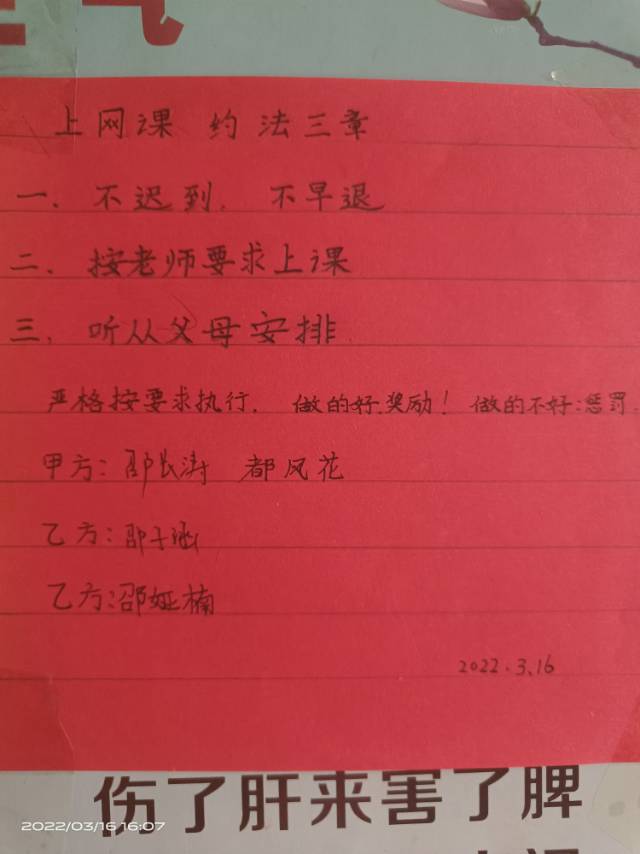 气
上网课 约法三章
一. 不迟到. 不早退
二. 按老师要求上课
三. 听从父母安排.
严格按要求执行. 做的好.奖励! 做的不好:惩罚.
甲方: 邵长涛 都风花
乙方: 邵子涵
乙方: 邵娅楠
2022.3.16
伤了肝来害了脾
2022/03/16 16:07